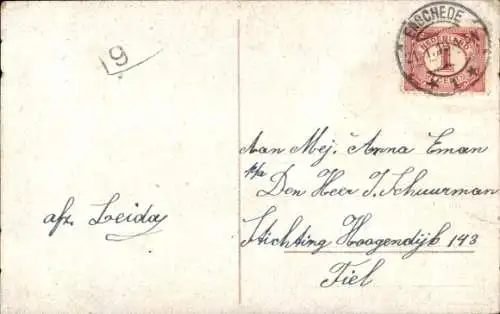 ENSCHEDE
NEDERLAND
1
9
Aan Mej. Anna Eman
p/a
Den Heer J. Schuurman
afz. Leida
Stichting Hoogendijk 143
Tiel